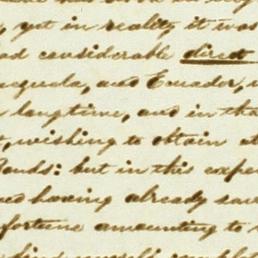 , yet in reality it was
ad considerable direct
, and Ecuador,
longtime, and in tha
, wishing to obtain
Bonds: but in this expe
ed having already sa
fortune amounting to
find myself